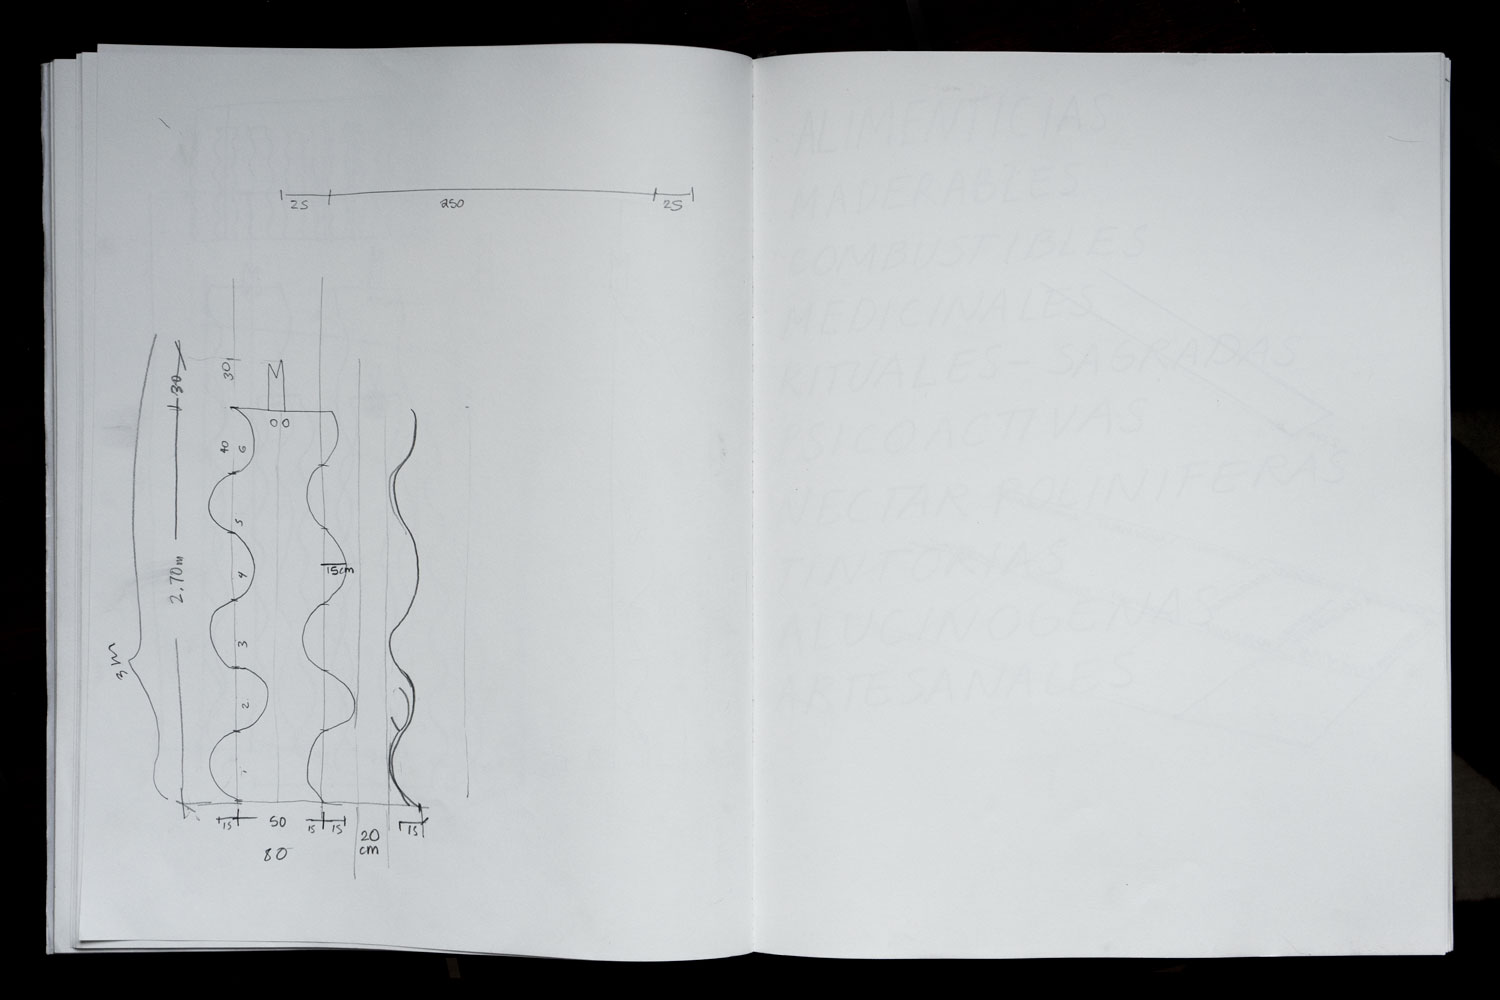 25 250 25
30
30
40
6
5
4
3
2
15cm
2.70m
3M
15 50 15 15 15
80
20
cm
ALIMENTICIAS
MADERABLES
COMBUSTIBLES
MEDICINALES
RITUALES- SAGRADAS
PSICOACTIVAS
NECTAR POLINIFERAS
TINTORIAS
ALUCINOGENAS
ARTESANALES